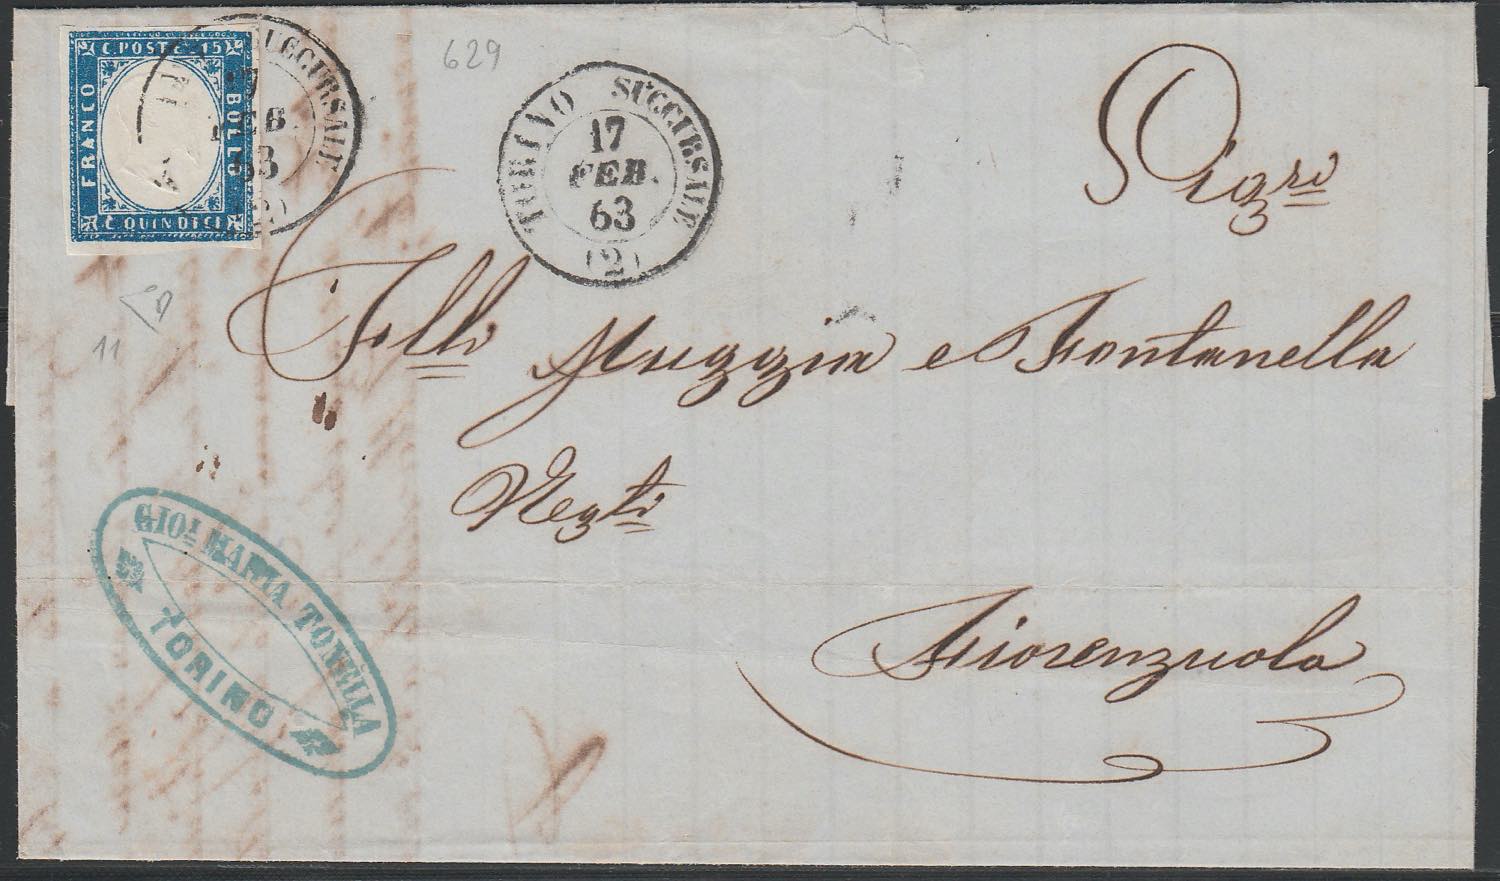 C. POSTE. 15
FRANCO
BOLLO
C. QUINDICI
SUCCURSALE
17
FEB.
63
(2)
629
TORINO SUCCURSALE
17
FEB.
63
(2)
Sigri
Flli Muggia e Fontanella
Negti
Fiorenzuola
11
GIO! MARIA TONELLA
TORINO